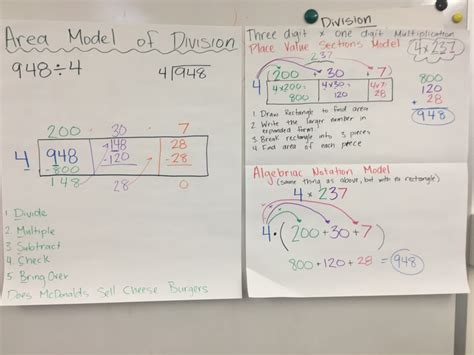 Area Model of Division
948÷4
4)948
200 30 7
4 948 148 28
-800 -120 -28
148 28 0
1 Divide
2 Multiple
3 Subtract
4 Check
5 Bring Over
Does McDonalds Sell Cheese Burgers
Division
Three digit x one digit Multiplication
Place Value Sections Model
4x237
237
4 (200 + 30 + 7)
4x200= 4x30= 4x7=
800 120 28
800
120
+ 28
948
1 Draw Rectangle to find area
2 Write the larger number in
expanded form
3 Break rectangle into 3 pieces
4 Find area of each piece
Algebriac Notation Model
(same thing as above, but with no rectangle)
4 x 237
4•(200+30+7)
800+120+28=948